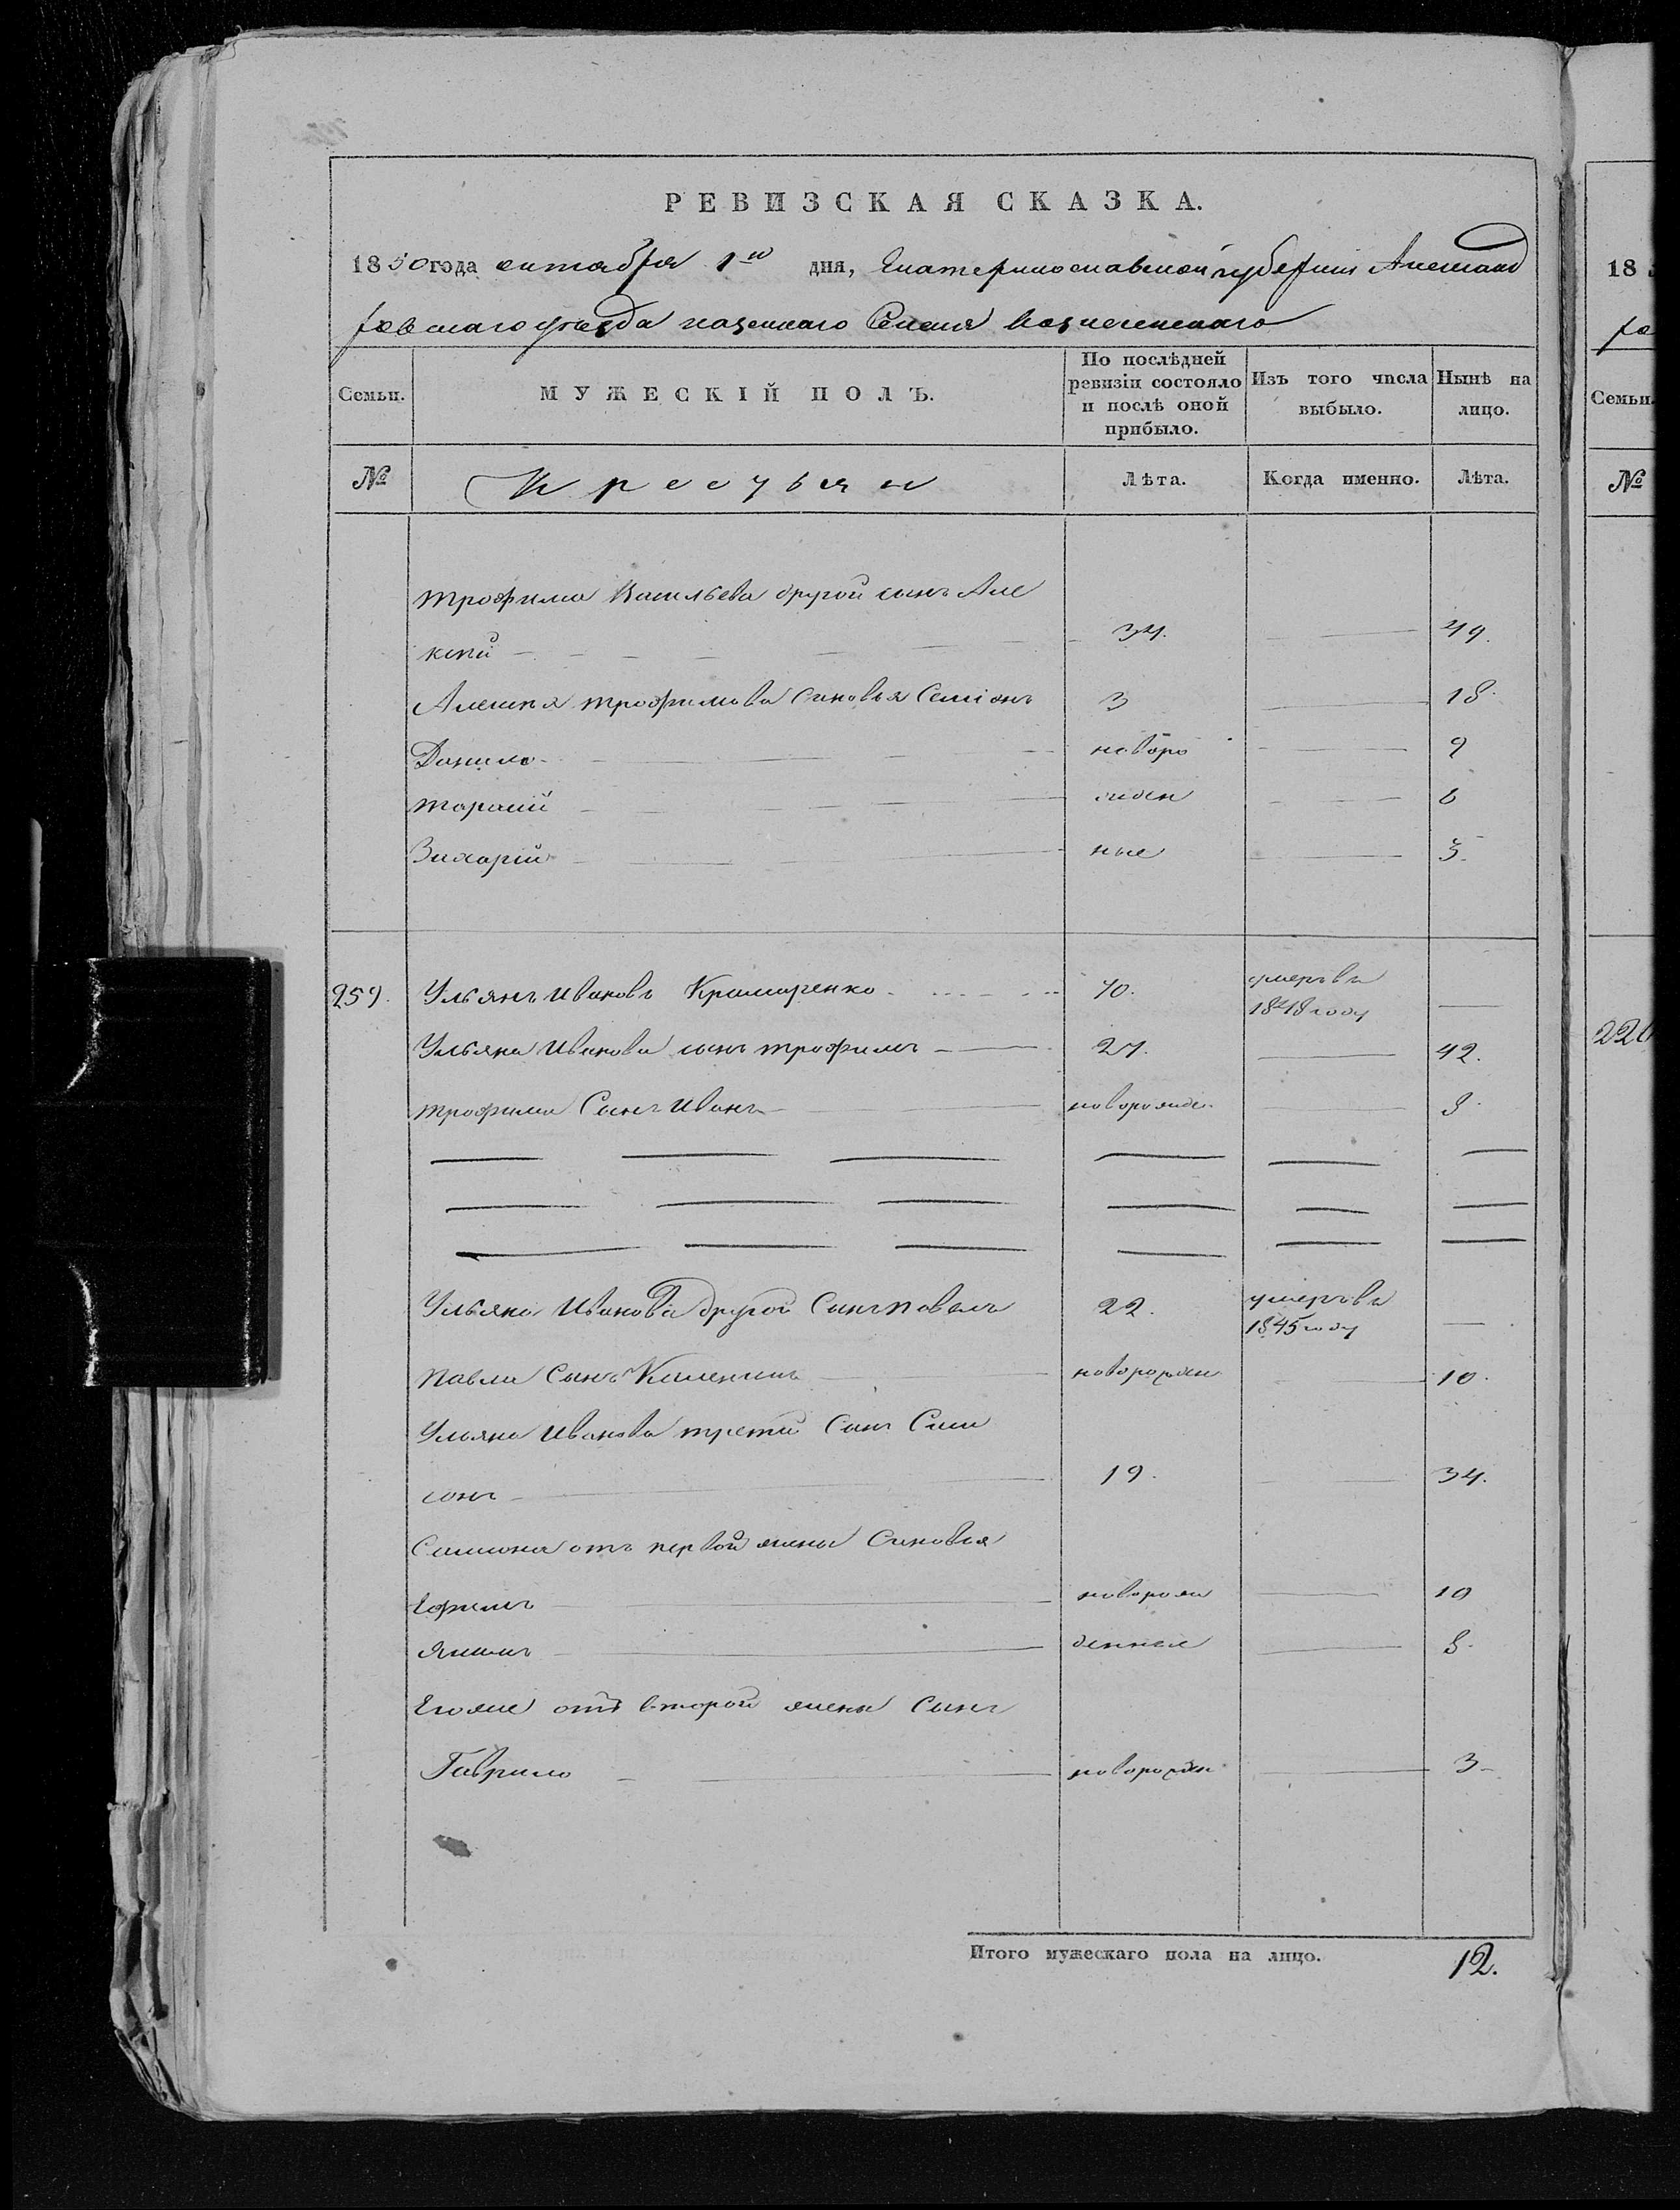 РЕВИЗСКАЯ СКАЗКА.
1850 года октября 1го дня, Екатеринославской губернии Александ
ровскаго уезда казеннаго Селенія Вознесенскаго
Семьи. МУЖЕСКІЙ ПОЛЪ. По послѣдней ревизіи состояло и послѣ оной прибыло. Изъ того числа выбыло. Нынѣ на лицо.
№ Крестьян Лѣта. Когда именно. Лѣта.
Трофима Васильева другой сынъ Але
ксій 34. 49.
Алексея Трофимова Сыновья Семіонъ 3 18.
Данило новоро 9
Тарасій жден 6
Захарій ные 3.
259. Ульянъ Ивановъ Крамаренко 70. умеръ въ
1848 году
Ульяна Иванова сынъ Трофимъ 27. 42.
Трофима Сынъ Иванъ новорожде. 8.
Ульяна Иванова другой Сынъ Павелъ 22. умеръ въ
1845 году
Павла Сынъ новорожден 10.
Ульяна Иванова третій Сынъ Сам
сонъ 19. 34.
Самсона отъ первой жены Сыновья
Ефимъ новорож 10
Якимъ денные 8.
Егоже отъ второй жены Сынъ
Гаврило новорожден 3
Итого мужескаго пола на лицо. 12.
18
ро
Семьи.
№